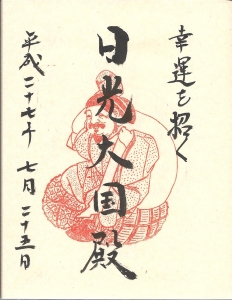 幸運を招く
日光大国殿
平成二十七年 七月 二十五日